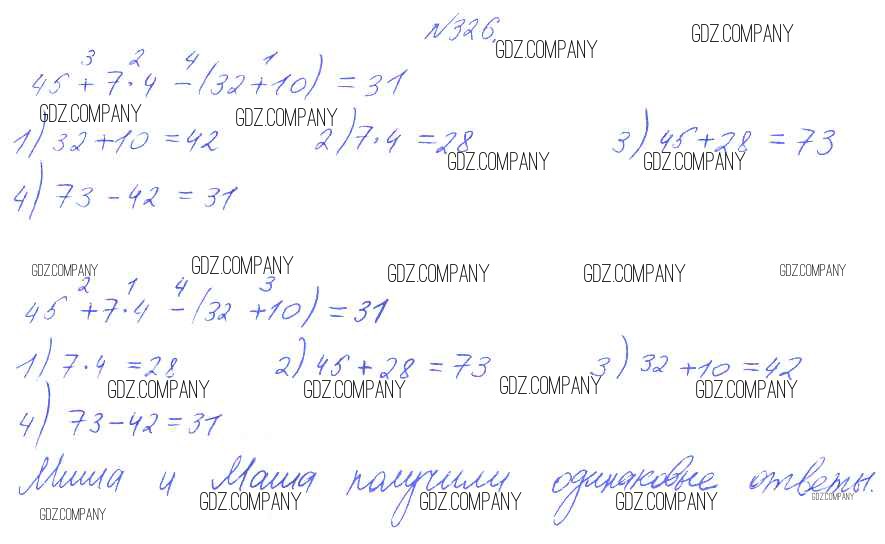 №326.
GDZ.COMPANY GDZ.COMPANY
3 2 4 1
45 + 7 · 4 - (32+10) = 31
GDZ.COMPANY GDZ.COMPANY
1) 32+10 = 42 2) 7·4 = 28 3) 45+28 = 73
GDZ.COMPANY GDZ.COMPANY
4) 73 - 42 = 31
GDZ.COMPANY GDZ.COMPANY GDZ.COMPANY GDZ.COMPANY GDZ.COMPANY
2 1 4 3
45 + 7·4 - (32 + 10) = 31
1) 7·4 = 28 2) 45 + 28 = 73 3) 32 + 10 = 42
GDZ.COMPANY GDZ.COMPANY GDZ.COMPANY GDZ.COMPANY
4) 73 - 42 = 31
Миша и Маша получили одинаковые ответы.
GDZ.COMPANY GDZ.COMPANY GDZ.COMPANY GDZ.COMPANY
GDZ.COMPANY